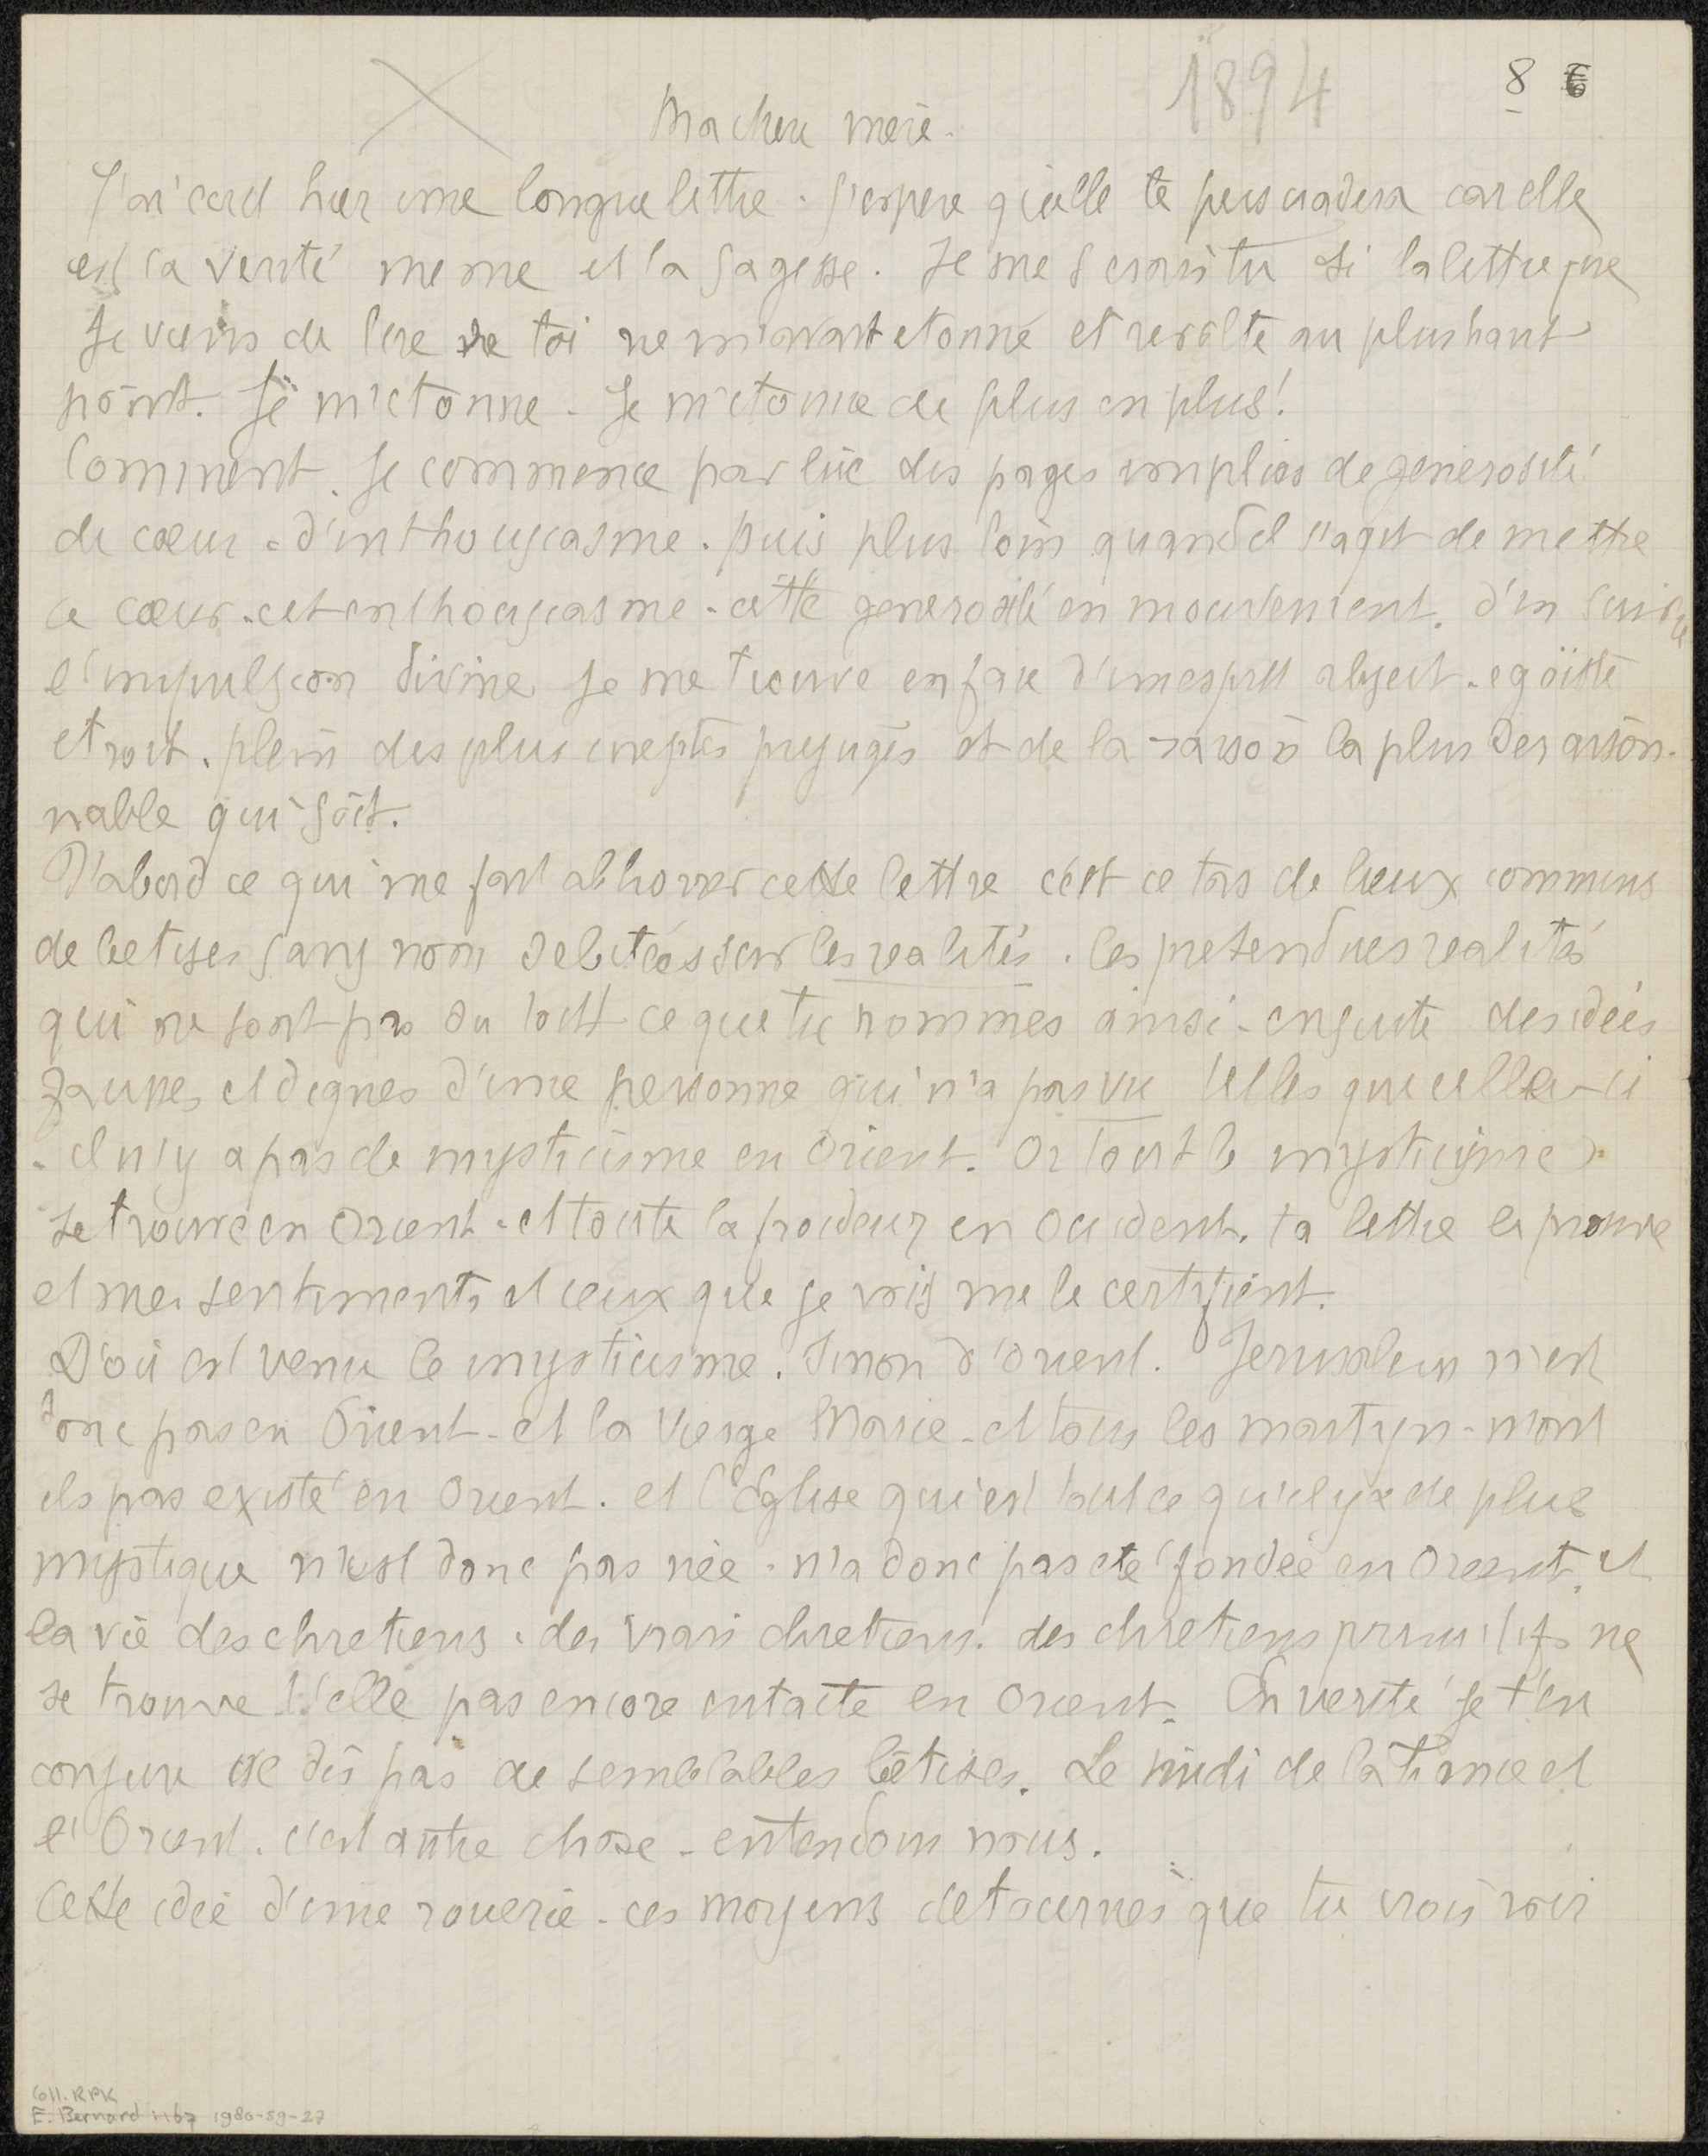 1894
8 6
Ma chere mere.
J'ai ecrit hier une longue lettre. j'espere qu'elle te persuadera car elle
est la verité meme et la sagesse. Je me si la lettre que
je viens de lire de toi ne m'avait etonné et revolté au plus haut
point. Je m'etonne. Je m'etonne de plus en plus!
Comment. je commence par lire des pages emplies de generosité
de cœur. d'enthousiasme. puis plus loin quand il s'agit de mettre
ce cœur. cet enthousiasme. cette generosité en mouvement. d'en suivre
l'impulsion divine je me trouve en face d'un esprit abject. egoïste
etroit. plein des plus ineptes prejugés et de la raison la plus deraison-
nable qui soit.
D'abord ce qui me fait abhorrer cette lettre c'est ce tas de lieux communs
de betises sans nom debitées sur les realités. les pretendues realités
qui ne sont pas du tout ce que tu nommes ainsi. ensuite des idées
fausses et dignes d'une personne qui n'a pas vu telles que celle-ci
. il n'y a pas de mysticisme en Orient. Or tout le mysticisme
se trouve en Orient. et toute la froideur en Occident. ta lettre le prouve
et mes sentiments et ceux que je vois me le certifient.
D'où est venu le mysticisme. Sinon d'Orient. Jerusalem n'est
donc pas en Orient. et la Vierge Marie. et tous les martyrs. n'ont
ils pas existé en Orient. et l'Eglise qui est tout ce qu'il y a de plus
mystique n'est donc pas née. n'a donc pas eté fondée en Orient. et
la vie des chretiens. des vrais chretiens. des chretiens primitifs ne
se trouve t'elle pas encore intacte en Orient. En verité je t'en
conjure ne dis pas de semblables bêtises. Le midi de la France et
l'Orient. c'est autre chose. entendons nous.
Cette idée d'une rouerie. ces moyens detournés que tu crois voir
611. RPK
E. Bernard 1980-59-27